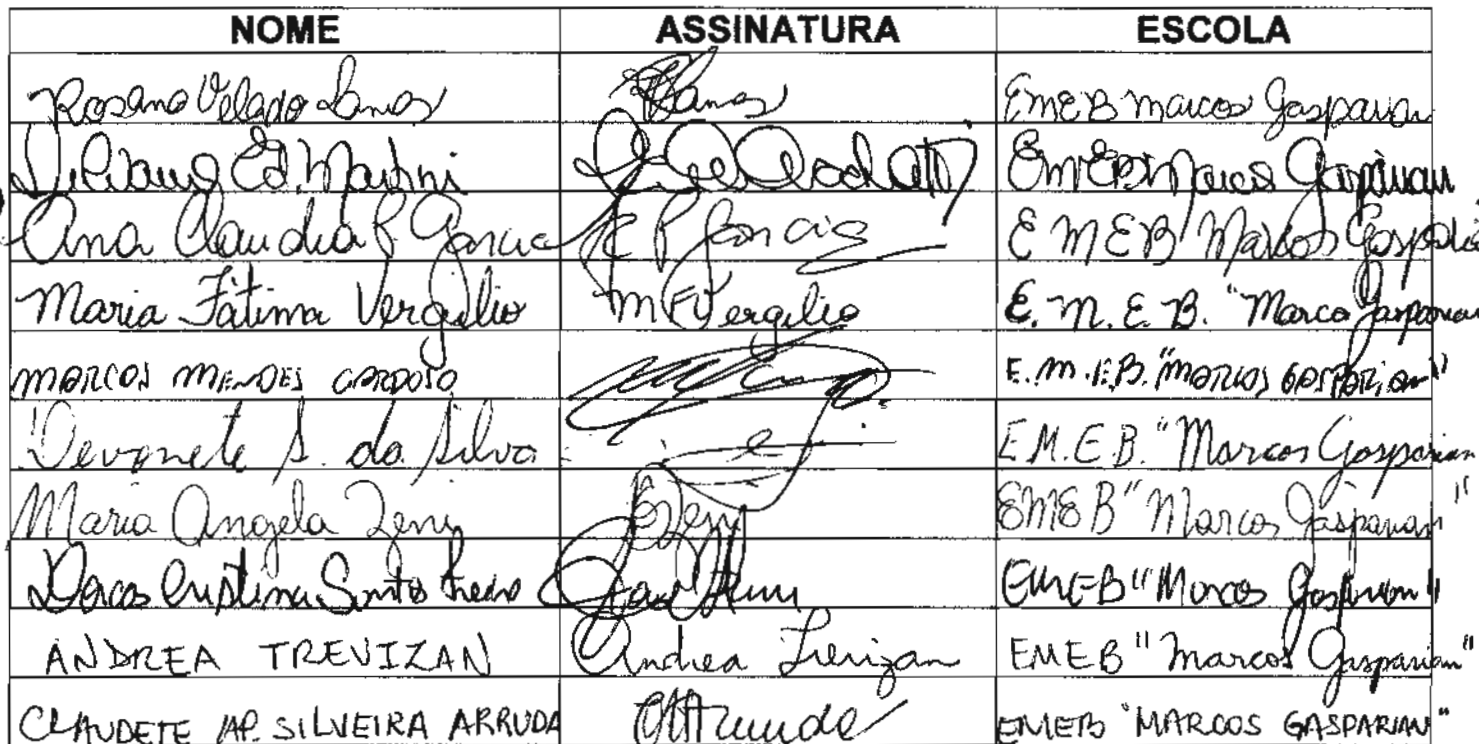 NOME ASSINATURA ESCOLA
Rosana Velado Lanas Lanas EMEB Marcos Gasparian
Liliane Ed. Martini EMEB Marcos Gasparian
Ana Claudia P. Garcia A C P Garcia EMEB Marcos Gasparia
Maria Fátima Vergilio M F Vergilio E. M. E. B. "Marcos Gasparian
MARCOS MENDES CARDOSO E.M.E.B. "MARCOS GASPARIAN"
Devanete S. da Silva E.M.E.B. "Marcos Gasparian
Maria Angela Zeni Zeni EMEB "Marcos Gasparian"
Dorcas Cristina Santo Pedro EMEB "Marcos Gasparian"
ANDREA TREVIZAN Andrea Trevizan EMEB "Marcos Gasparian"
CLAUDETE AP. SILVEIRA ARRUDA Arruda EMEB "MARCOS GASPARIAN"